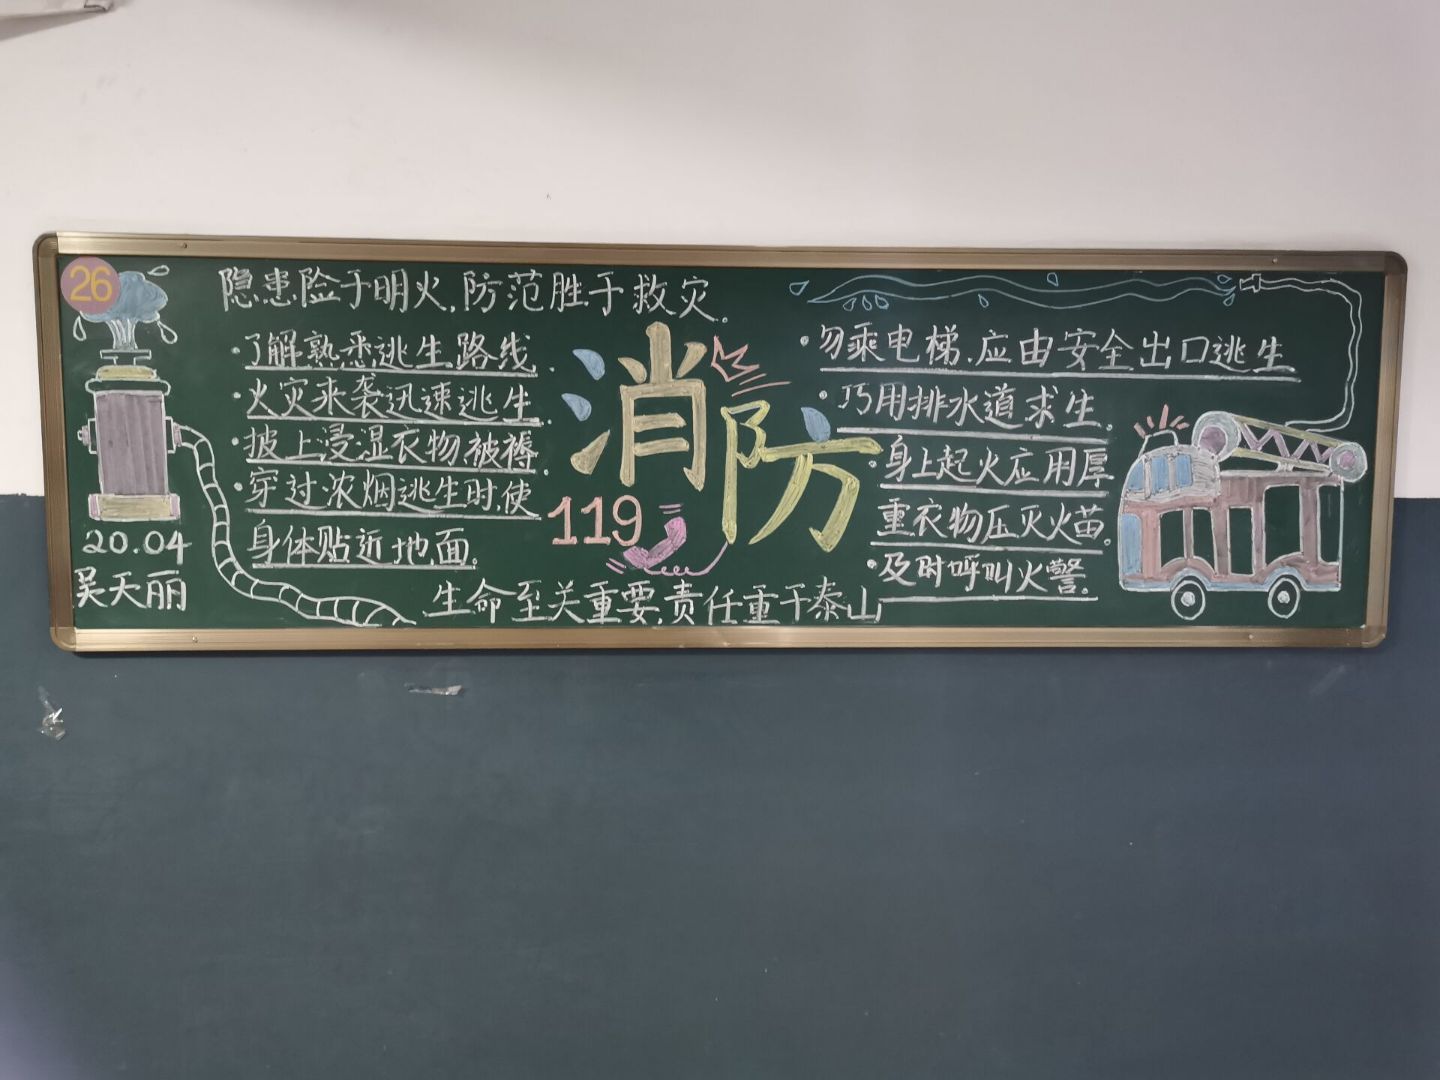 26
隐患险于明火,防范胜于救灾。
·了解熟悉逃生路线.
·火灾来袭迅速逃生.
·披上浸湿衣物被褥.
·穿过浓烟逃生时,使
身体贴近地面。
20.04
吴天丽
消防
119
·勿乘电梯.应由安全出口逃生
·巧用排水道求生.
·身上起火应用厚
重衣物压灭火苗.
·及时呼叫火警.
生命至关重要,责任重于泰山